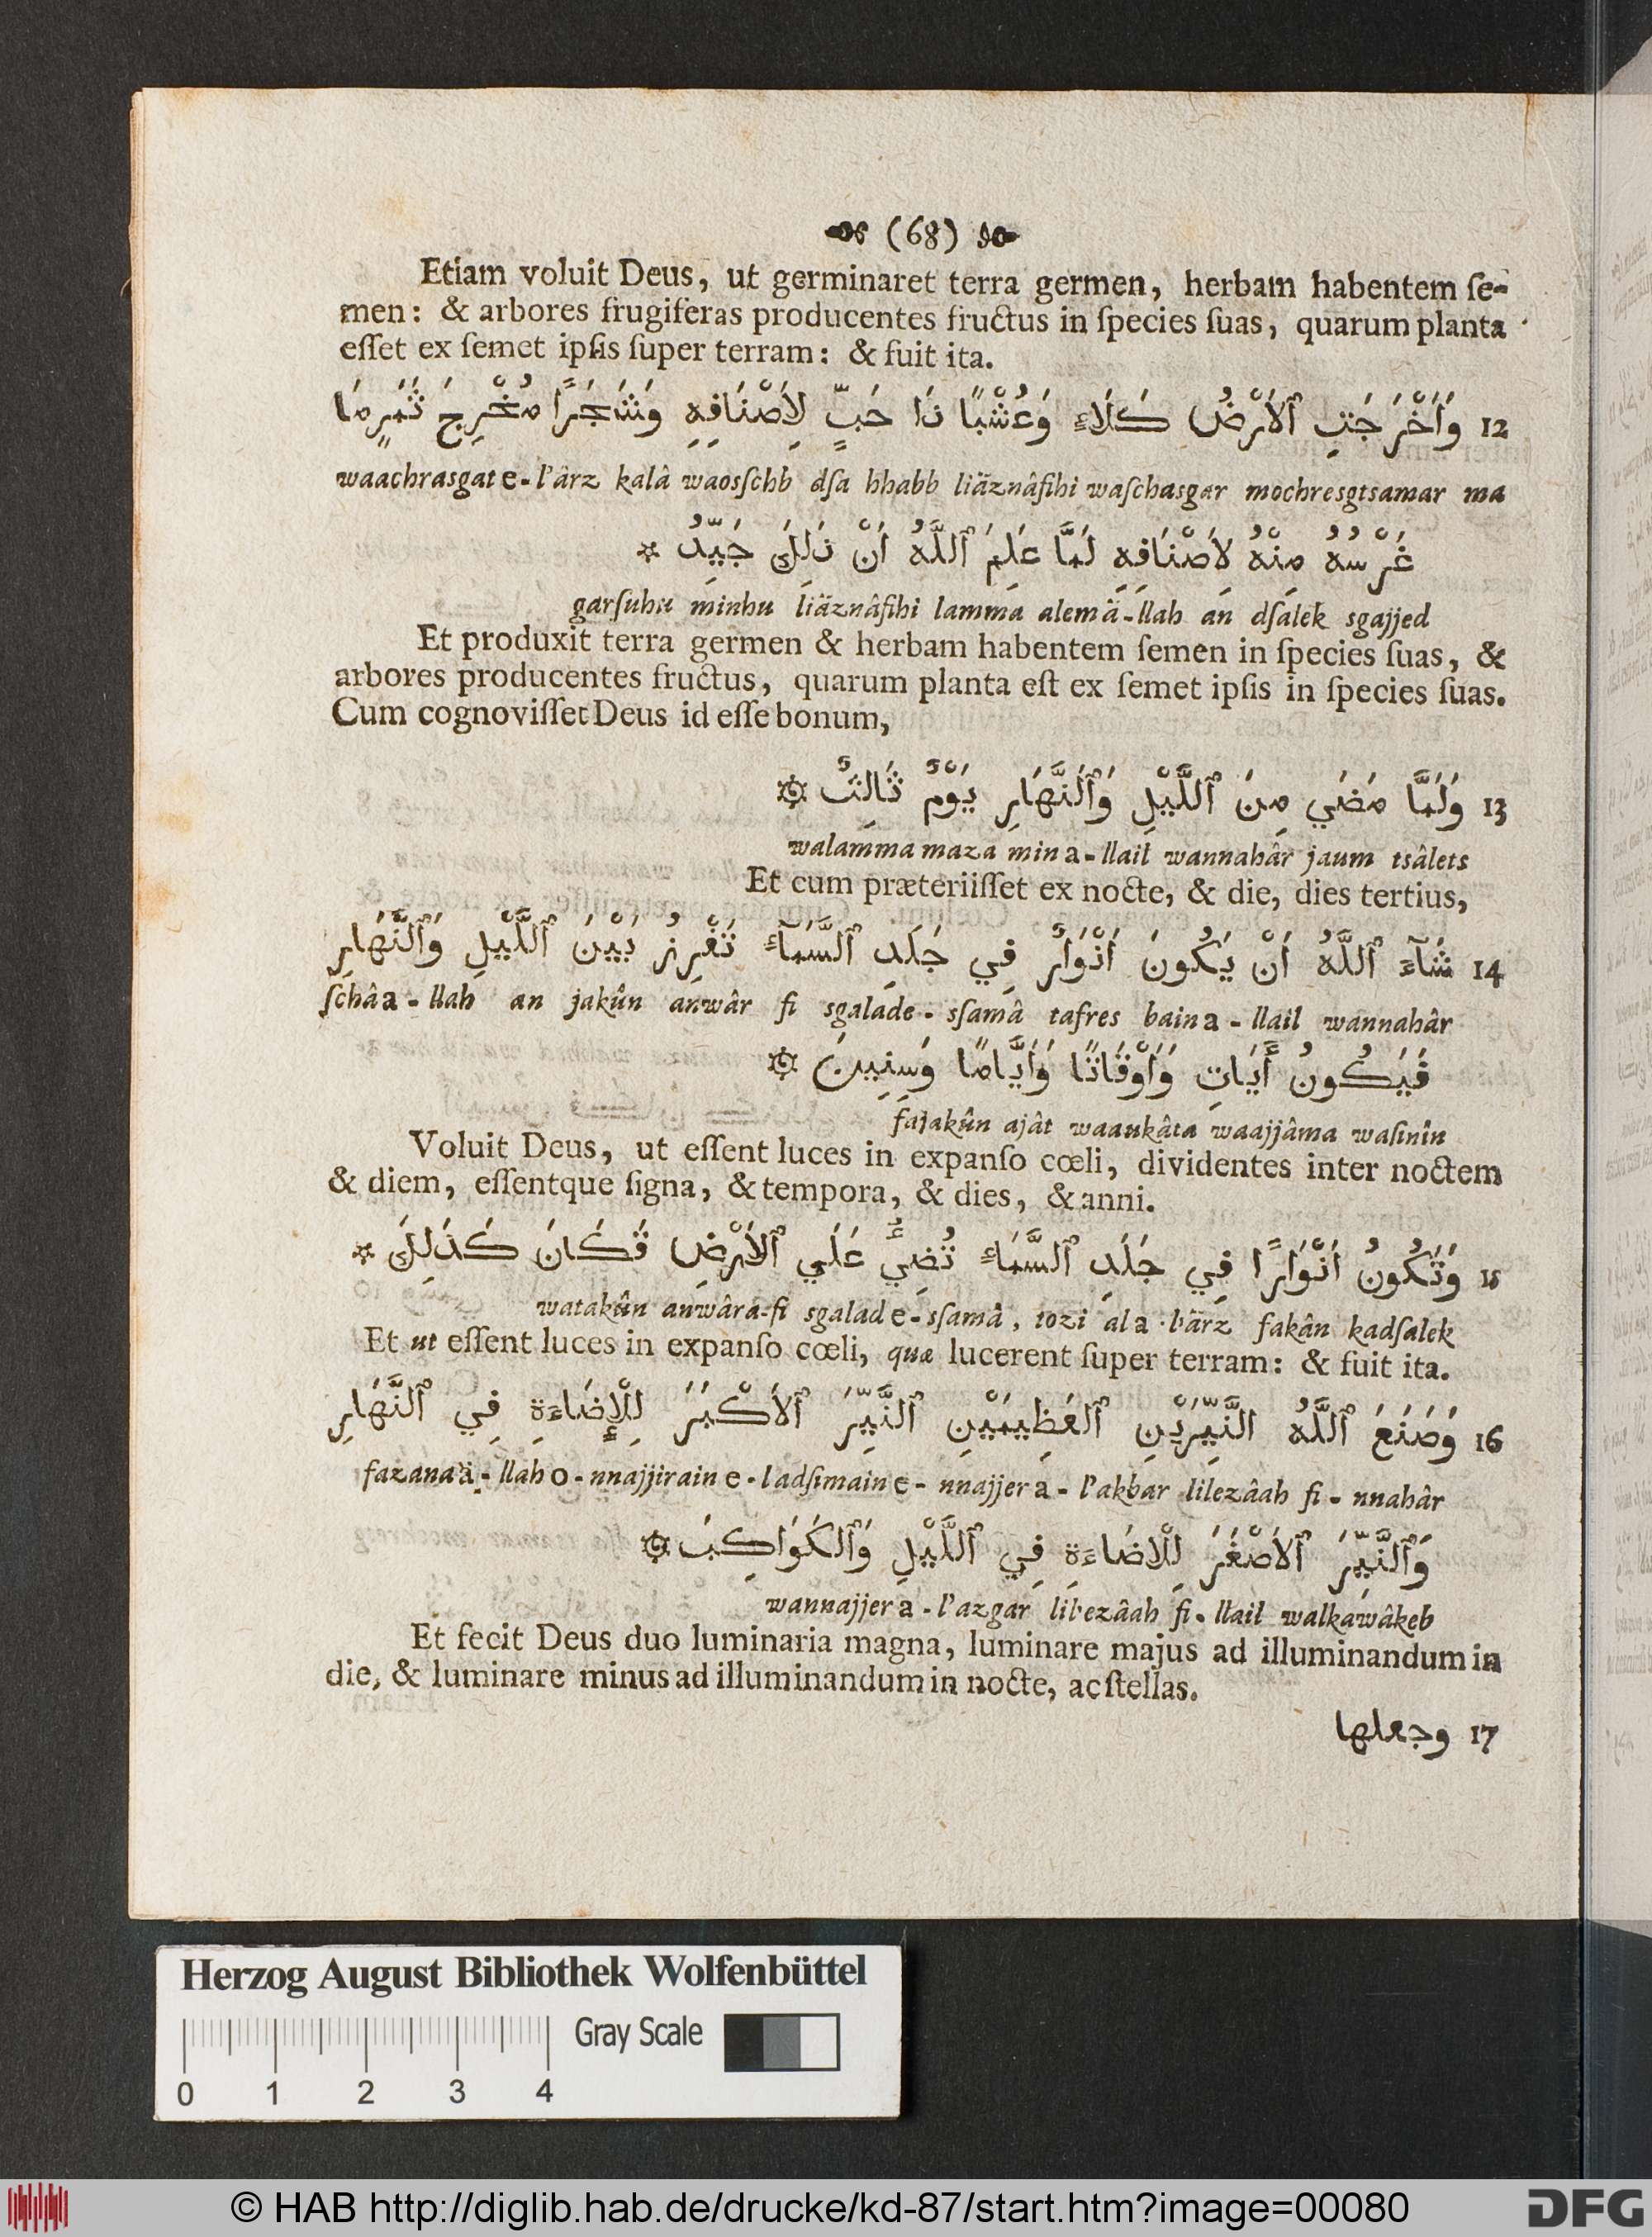 (68)
Etiam voluit Deus, ut germinaret terra germen, herbam habentem ſe-
men: & arbores frugiferas producentes fructus in ſpecies ſuas, quarum planta
eſſet ex ſemet ipſis ſuper terram: & fuit ita.
12 وَأَخْرَجَتِ ٱلْأَرْضُ كَلَاءً وَعُشْبًا ذَا حَبٍّ لِأَصْنَافِهِ وَشَجَرًا مُخْرِجَ ثَمَرٍ مَا
waachrasgat e-l'ârz kalâ waosſchb dſa hhabb liäznâfihi waſchasgar mochresgtsamar ma
غَرْسُهُ مِنْهُ لِأَصْنَافِهِ لَمَّا عَلِمَ ٱللَّهُ أَنْ ذَلِكَ جَيِّدٌ *
garſuhu minhu liäznâfihi lamma alemä-llah an dſalek sgajjed
Et produxit terra germen & herbam habentem ſemen in ſpecies ſuas, &
arbores producentes fructus, quarum planta eſt ex ſemet ipſis in ſpecies ſuas.
Cum cognoviſſet Deus id eſſe bonum,
13 وَلَمَّا مَضَي مِنَ ٱللَّيْلِ وَٱلنَّهَارِ يَوْمٌ ثَالِثٌ
walamma maza min a-llail wannahâr jaum tsâlets
Et cum præteriiſſet ex nocte, & die, dies tertius,
14 شَآءَ ٱللَّهُ أَنْ يَكُونَ أَنْوَارٌ فِي جَلَدِ ٱلسَّمَآءِ تَفْرِزُ بَيْنَ ٱللَّيْلِ وَٱلنَّهَارِ
ſchâa-llah an jakûn anwâr fi sgalade-sſamâ tafres bain a-llail wannahâr
فَيَكُونُ أَيَاتِ وَأَوْقَاتًا وَأَيَّامًا وَسِنِينَ
fajakûn ajât waaukâta waajjâma waſinîn
Voluit Deus, ut eſſent luces in expanſo cœli, dividentes inter noctem
& diem, eſſentque ſigna, & tempora, & dies, & anni.
15 وَتَكُونُ أَنْوَارًا فِي جَلَدِ ٱلسَّمَاءِ تُضِيُّ عَلَي ٱلْأَرْضِ فَكَانَ كَذَلِكَ *
watakûn anwâra-fi sgalad e-sſamâ, tozi al a-l'ärz fakân kadſalek
Et ut eſſent luces in expanſo cœli, quæ lucerent ſuper terram: & fuit ita.
16 وَصَنَعَ ٱللَّهُ النَّيِّرَيْنِ ٱلعَظِيمَيْنِ ٱلنَّيِّرَ ٱلأَكْبَرَ لِلْإِضَاءَةِ فِي ٱلنَّهَارِ
fazanaä-llah o-nnajjirain e-ladſimain e-nnajjer a-l'akbar lilezâah fi-nnahâr
وَٱلنَّيِّرَ ٱلأَصْغَرَ لِلْاضَاءَةِ فِي ٱللَّيْلِ وَٱلْكَوَاكِبَ
wannajjer a-l'azgar lilezâah fi-llail walkawâkeb
Et fecit Deus duo luminaria magna, luminare majus ad illuminandum in
die, & luminare minus ad illuminandum in nocte, ac ſtellas.
17 وجعلها
Herzog August Bibliothek Wolfenbüttel
Gray Scale
0 1 2 3 4
© HAB http://diglib.hab.de/drucke/kd-87/start.htm?image=00080
DFG